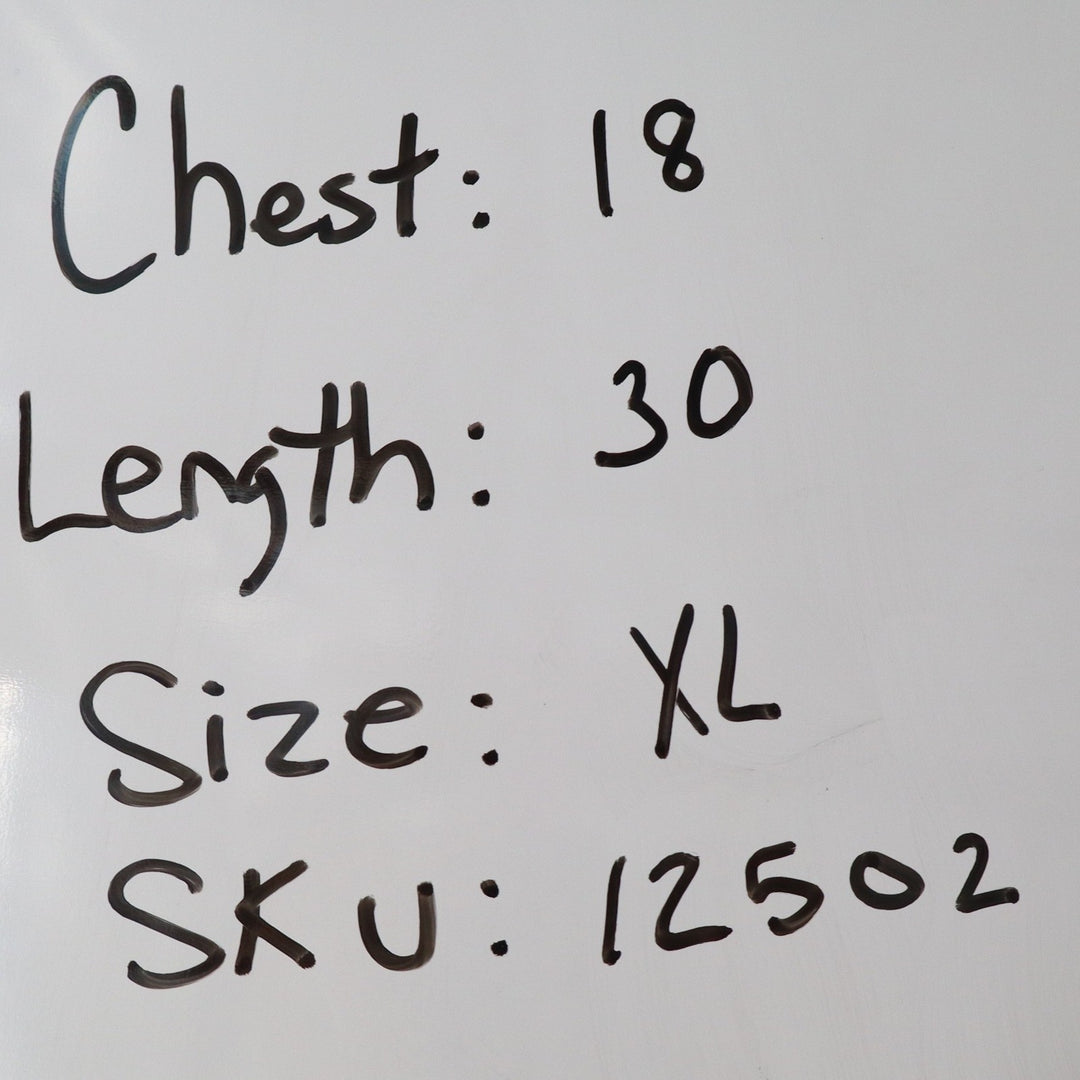 Chest: 18
Length: 30
Size: XL
SKU: 12502